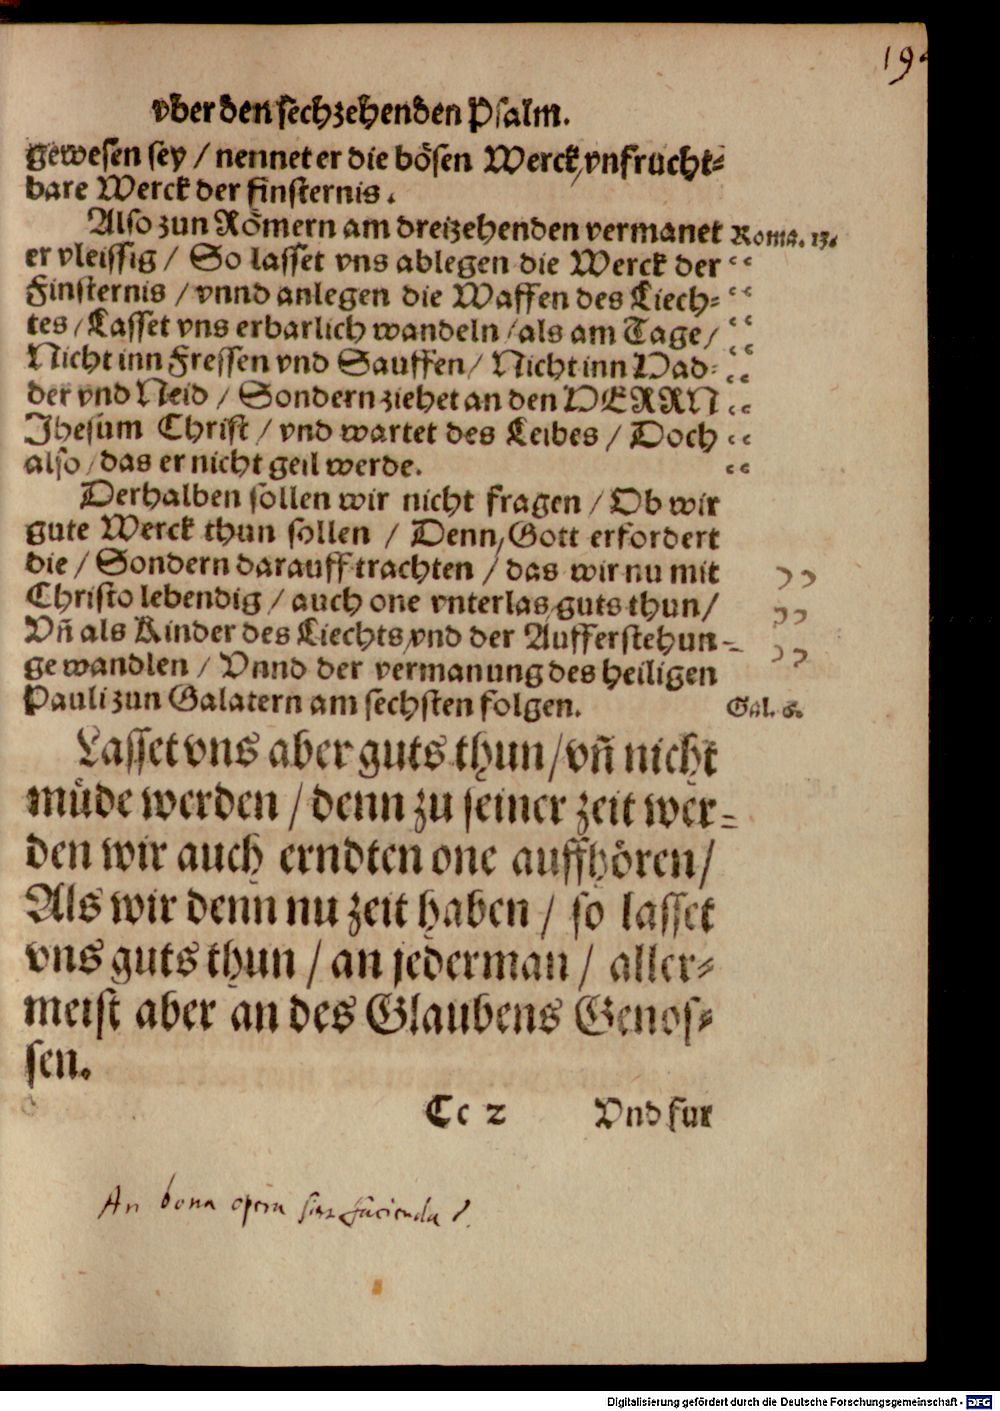 19
vber den sechzehenden Psalm.
gewesen sey / nennet er die bösen Werck / vnfrucht⸗
bare Werck der finsternis.
Also zun Römern am dreizehenden vermanet Roma. 13.
er vleissig / So lasset vns ablegen die Werck der “
Finsternis / vnnd anlegen die Waffen des Liech⸗ “
tes / Lasset vns erbarlich wandeln / als am Tage / “
Nicht inn Fressen vnd Sauffen / Nicht inn Had⸗ “
der vnd Neid / Sondern ziehet an den HERRN “
Jhesum Christ / vnd wartet des Leibes / Doch “
also / das er nicht geil werde. “
Derhalben sollen wir nicht fragen / Ob wir
gute Werck thun sollen / Denn / Gott erfordert
die / Sondern darauff trachten / das wir nu mit ”
Christo lebendig / auch one vnterlas / guts thun / ”
Vñ als Kinder des Liechts / vnd der Aufferstehun⸗ ”
ge wandlen / Vnnd der vermanung des heiligen
Pauli zun Galatern am sechsten folgen. Gal. 6.
Lasset vns aber guts thun / vñ nicht
müde werden / denn zu seiner zeit wer⸗
den wir auch erndten one auffhören /
Als wir denn nu zeit haben / so lasset
vns guts thun / an jederman / aller⸗
meist aber an des Glaubens Genos⸗
sen.
Cc 2 Vnd fur
An bona opera sint facienda?
Digitalisierung gefördert durch die Deutsche Forschungsgemeinschaft - DFG